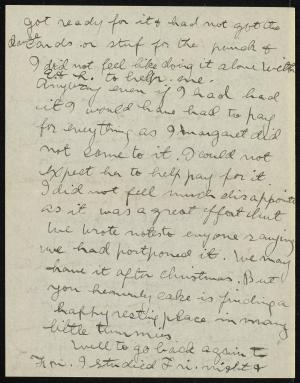 got ready for it & had not got the
dance cards or stuf for the punch &
I did not feel like doing it alone with
to help me.
Anyway even if I had had
it I would have had to pay
for everything as Margaret did
not come to it. I could not
expect her to help pay for it
I did not feel much disappoint
as it was a great effort but
We wrote notes to enyone saying
we had postponed it. We may
have it after Christmas. But
you heavenly cake is finding a
happy resting place in many
little tummies.
Well to go back again to
Fri. I studied Fri. night &